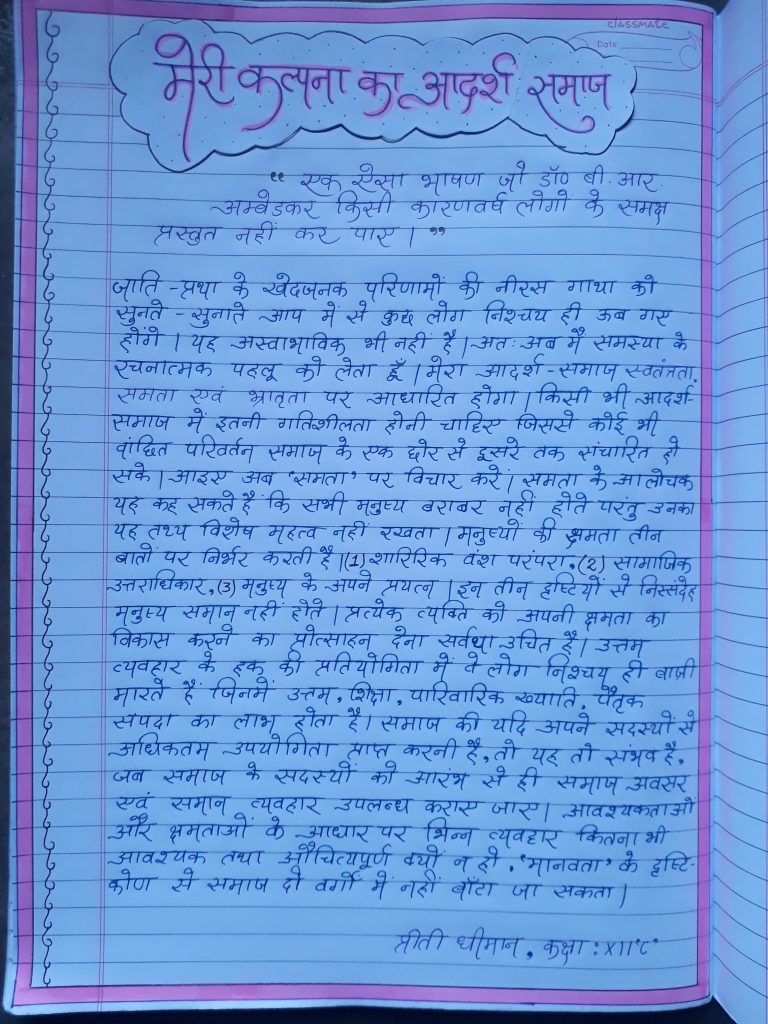 CLASSMATE
Date
मेरी कल्पना का आदर्श समाज
“ एक ऐसा भाषण जो डॉ० बी. आर.
अम्बेडकर किसी कारणवर्ष लोगों के समक्ष
प्रस्तुत नहीं कर पाए । ”
जाति - प्रथा के खेदजनक परिणामों की नीरस गाथा को
सुनते - सुनाते आप में से कुछ लोग निश्चय ही ऊब गए
होंगे । यह अस्वाभाविक भी नहीं है । अतः अब मैं समस्या के
रचनात्मक पहलू को लेता हूँ । मेरा आदर्श - समाज स्वतंत्रता,
समता एवं भ्रातृता पर आधारित होगा । किसी भी आदर्श
समाज में इतनी गतिशीलता होनी चाहिए जिससे कोई भी
वांछित परिवर्तन समाज के एक छोर से दूसरे तक संचारित हो
सके । आइए अब ‘समता’ पर विचार करें । समता के आलोचक
यह कह सकते हैं कि सभी मनुष्य बराबर नहीं होते परंतु उनका
यह तथ्य विशेष महत्व नहीं रखता । मनुष्यों की क्षमता तीन
बातों पर निर्भर करती है । (1) शारिरिक वंश परंपरा, (2) सामाजिक
उत्तराधिकार, (3) मनुष्य के अपने प्रयत्न । इन तीन दृष्टियों से निस्संदेह
मनुष्य समान नहीं होते । प्रत्येक व्यक्ति को अपनी क्षमता का
विकास करने का प्रोत्साहन देना सर्वथा उचित है । उत्तम
व्यवहार के हक की प्रतियोगिता में वे लोग निश्चय ही बाज़ी
मारते हैं जिनमें उत्तम, शिक्षा, पारिवारिक ख्याति, पैतृक
संपदा का लाभ होता है । समाज की यदि अपने सदस्यों से
अधिकतम उपयोगिता प्राप्त करनी है, तो यह तो संभव है,
जब समाज के सदस्यों को आरंभ से ही समाज अवसर
एवं समान व्यवहार उपलब्ध कराए जाए । आवश्यकताओ
और क्षमताओं के आधार पर भिन्न व्यवहार कितना भी
आवश्यक तथा औचित्यपूर्ण क्यों न हो, ‘मानवता’ के दृष्टि-
कोण से समाज दो वर्गों में नहीं बाँटा जा सकता ।
प्रीती धीमान, कक्षा : XII 'C'